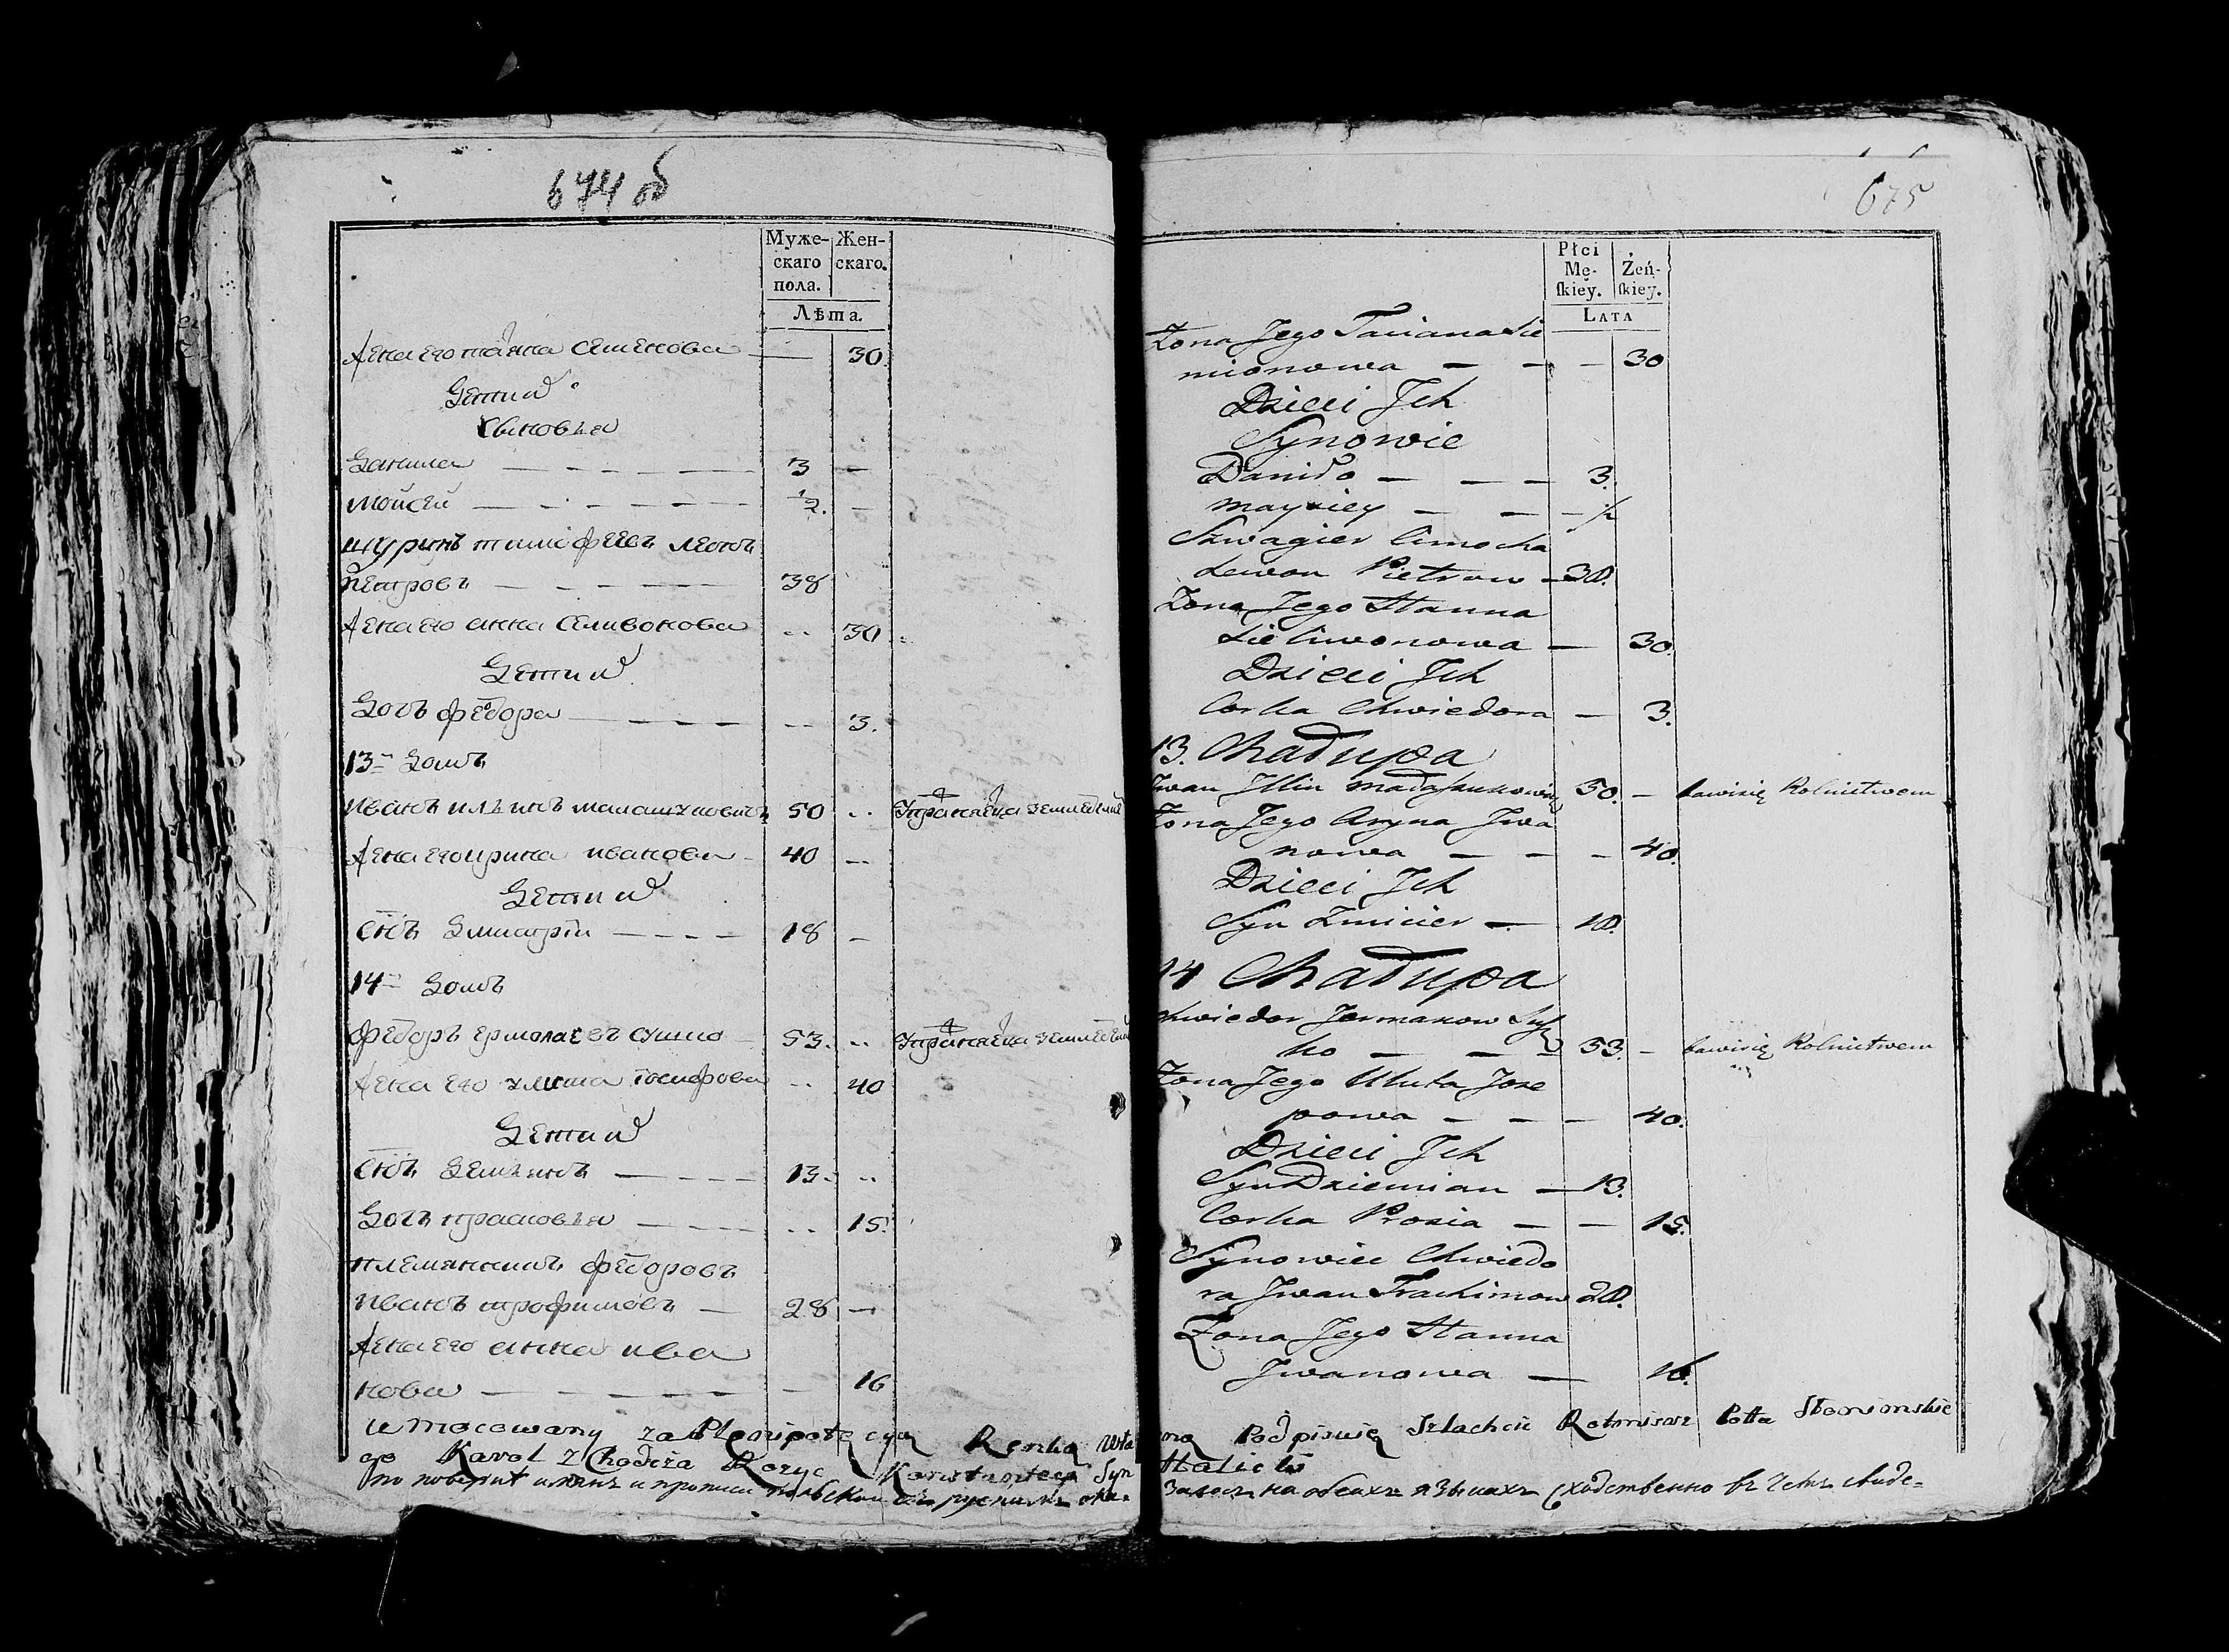 674 об
Муже-
скаго
пола.
Жен-
скаго.
Лѣта.
Жена его татiяна Семенова — 30.
Дети
Сыновья
Данила — 3 —
Мойсей — ½. —
Шуринъ тимофеевъ леонъ
Петровъ — 38
Жена его анна Селивонова .. 30
Дети
Дочь федора — .. 3.
13й Домъ
Иванъ ильинъ 50 ..
Жена его ирина иванова 40 ..
Дети
Сынъ Дмитрiй — 18 —
14й Домъ
Федоръ ермолаевъ сушко 53. ..
Жена его улита iосифова .. 40
Дети
Сынъ Демьянъ — 13. ..
Дочь прасковья — .. 15.
племянникъ федоровъ
Иванъ трофимовъ — 28 —
Жена его анна ива
нова — — 16
675
Płci
Mę-
skiey.
Żeń-
skiey.
LATA
Żona Jego Taciana Sie
mionowa — — — 30
Dzieci Jch
Synowie
Daniło — — — 3.
maysiey — — — ½
Szwagier Cimocha
Lewon Pietrow — 38.
Żona Jego Hanna
Sieliwonowa — 30.
Dzieci Jch
Corka Chwiedora — 3.
13. Chałupa
Jwan Jllin 50. — bawisię Rolnictwem
Żona Jego Aryna Jwa
nowa — — — 40.
Dzieci Jch
Syn Zmicier — 18.
14 Chałupa
Chwiedor Jarmakow Susz
ko — — — 53. — bawisię Rolnictwem
Żona Jego Uluta Joze
powa — — — 40.
Dzieci Jch
Syn Dziemian — 13.
Corka Prosia — — 15.
Synowiec Chwiedo
ra Jwan Trachimow 28.
Żona Jego Hanna
Jwanowa — 16.
Umocowany za Plenipotęcyą Ręką Własną Podpisuię Szlachcic Rotmistrz Pottu Słonimskie
go Karol Z Chodźca Rozyc Konstantego Syn